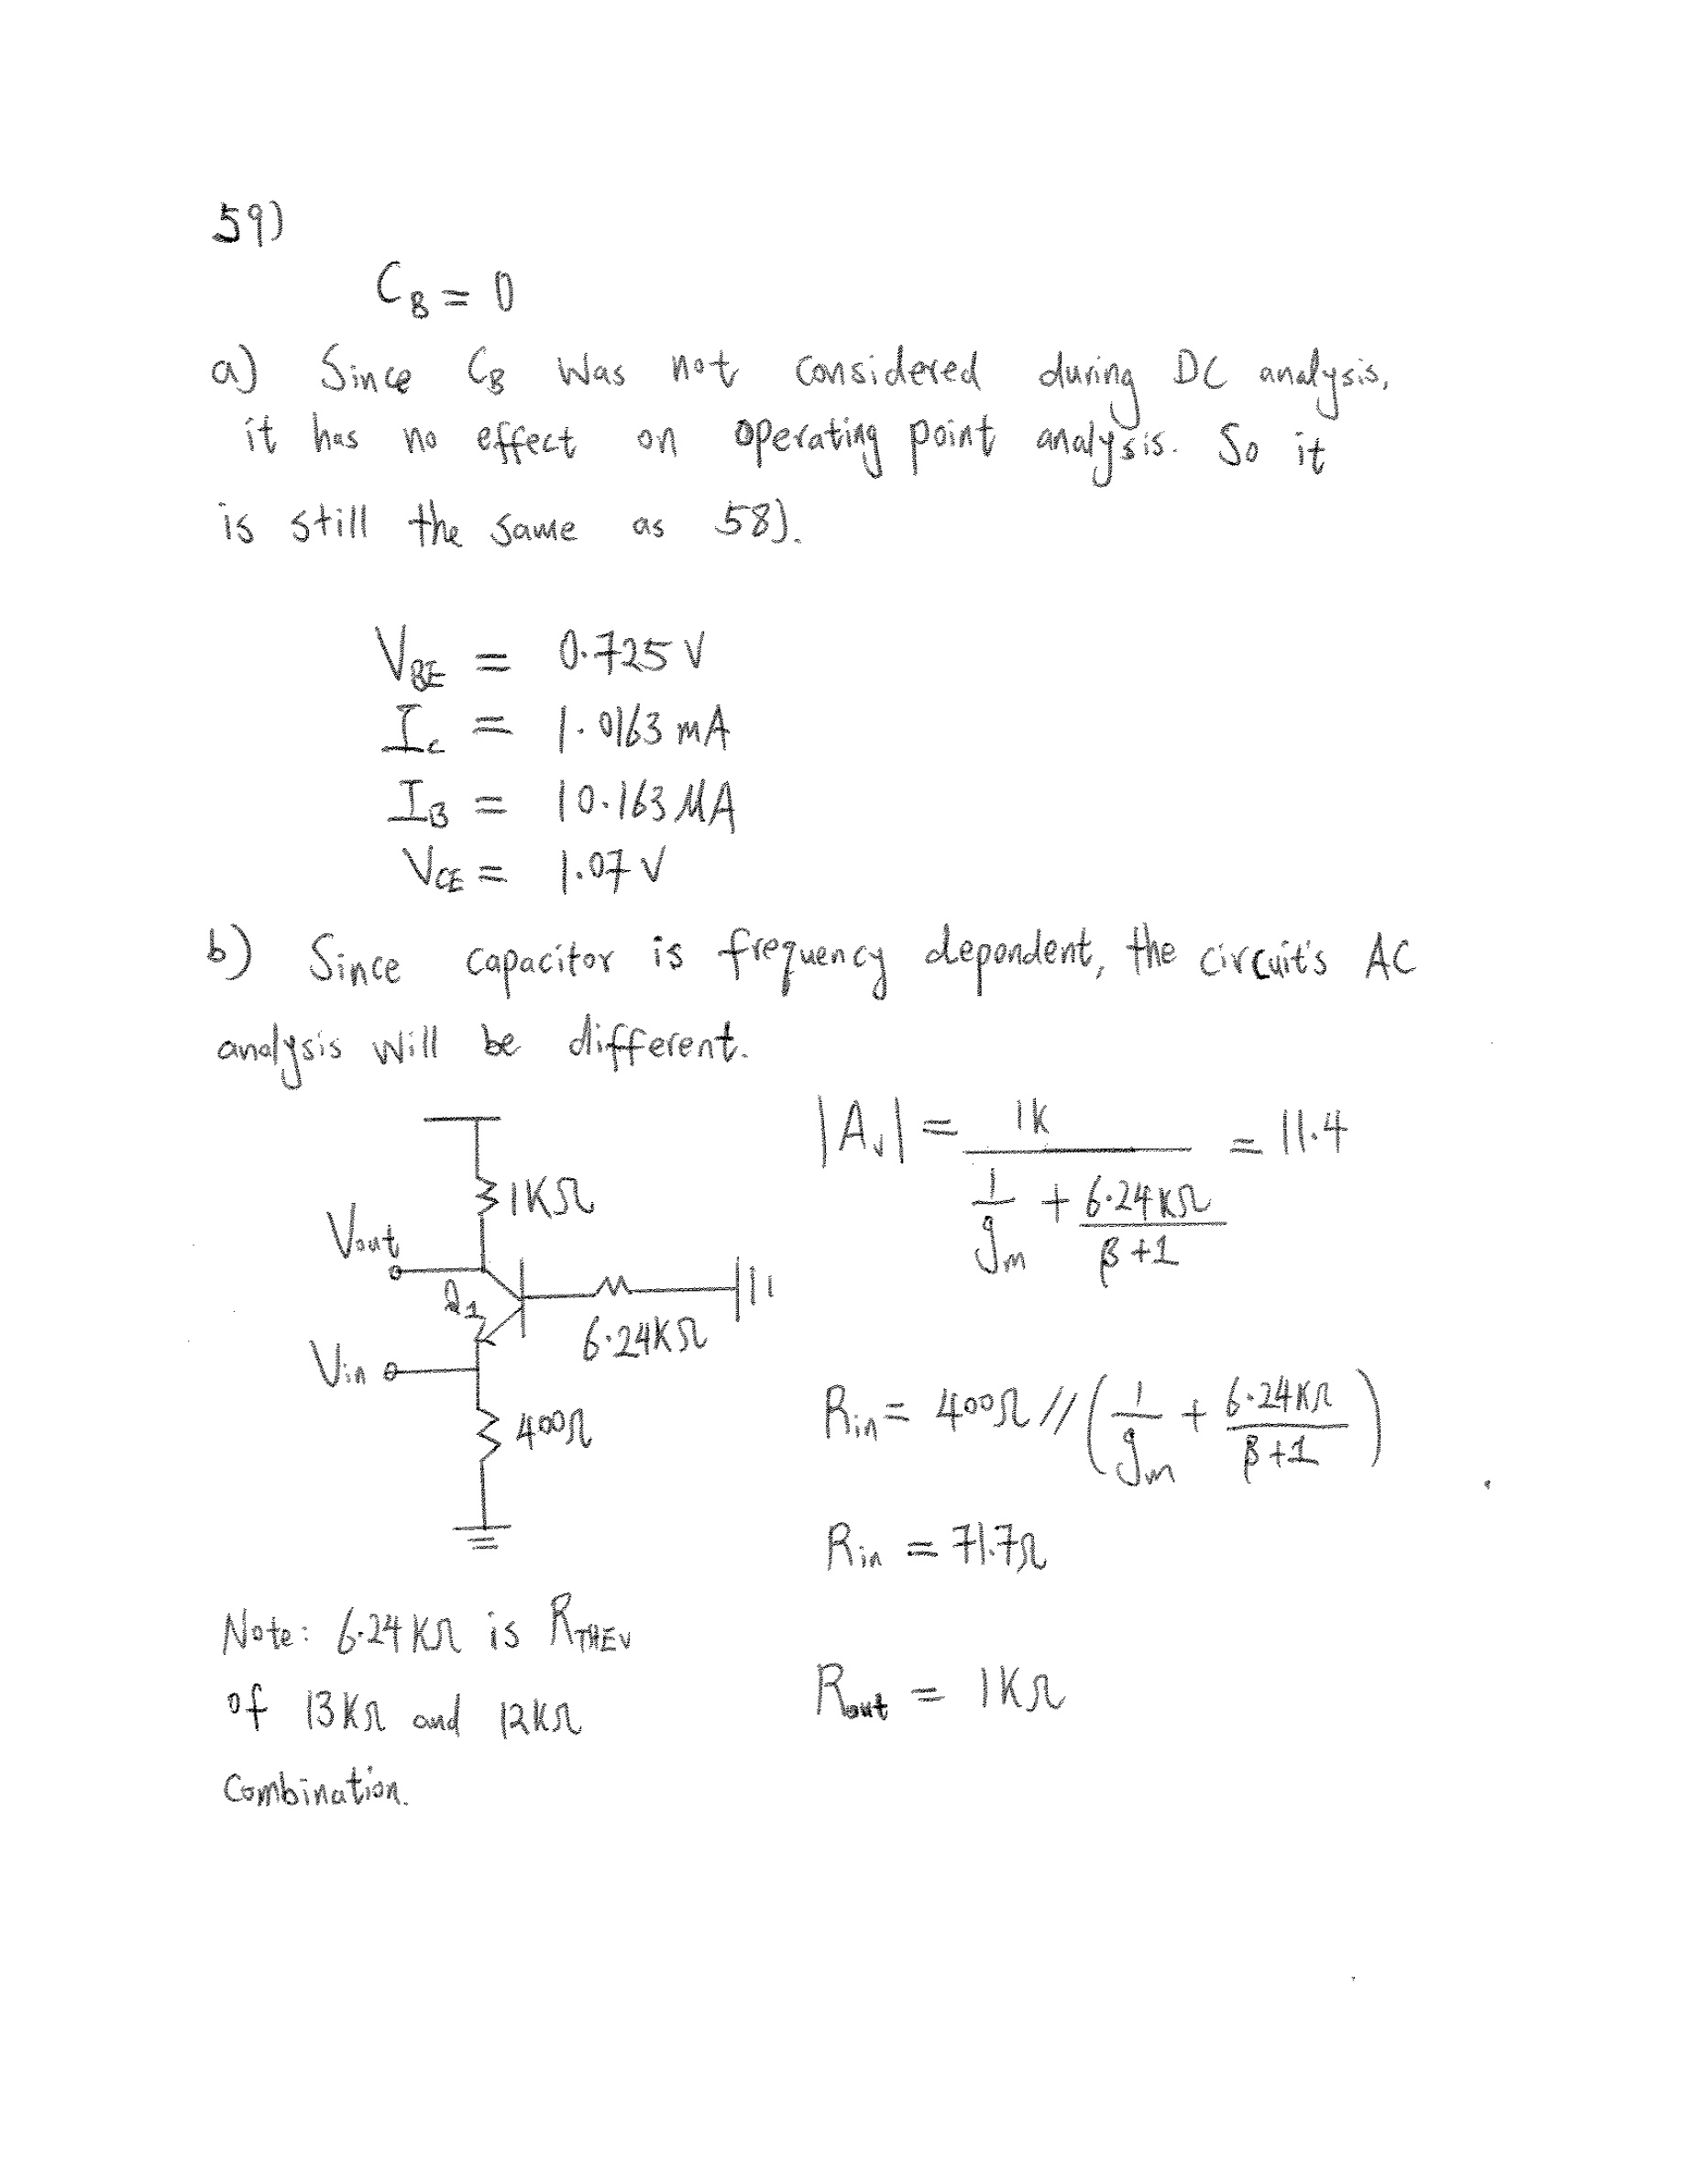 59)
C_B = 0
a) Since C_B was not considered during DC analysis,
it has no effect on operating point analysis. So it
is still the same as 58).
V_BE = 0.725 V
I_C = 1.0163 mA
I_B = 10.163 MA
V_CE = 1.07 V
b) Since capacitor is frequency dependent, the circuit's AC
analysis will be different.
1KΩ
Vout
Q1
6.24KΩ
Vin
400Ω
|Av| = 1k / (1/gm + 6.24KΩ/(β+1)) = 11.4
Rin = 400Ω // (1/gm + 6.24KΩ/(β+1))
Rin = 71.7Ω
Rout = 1KΩ
Note: 6.24KΩ is R_THEV
of 13KΩ and 12KΩ
Combination.